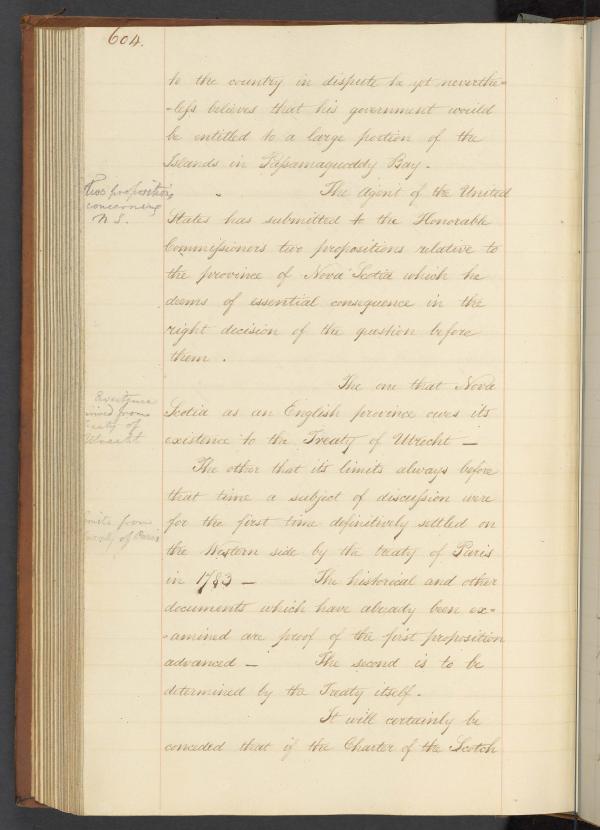 604.
to the country in dispute he yet neverthe=
-less believes that his government would
be entitled to a large portion of the
Islands in Passamaquoddy Bay.
Two propositions
concerning
N S.
The Agent of the United
States has submitted to the Honorable
Commissioners two propositions relative to
the province of Nova Scotia which he
deems of essential consequence in the
right decision of the question before
them.
The one that Nova
Scotia as an English province owes its
existence to the Treaty of Utrecht —
Existence
from
of
The other that its limits always before
that time a subject of discussion were
for the first time definitively settled on
the Western side by the treaty of Paris
in 1783 — The historical and other
from
of Paris
documents which have already been ex=
-amined are proof of the first proposition
advanced — The second is to be
determined by the Treaty itself.
It will certainly be
conceded that if the Charter of the Scotch